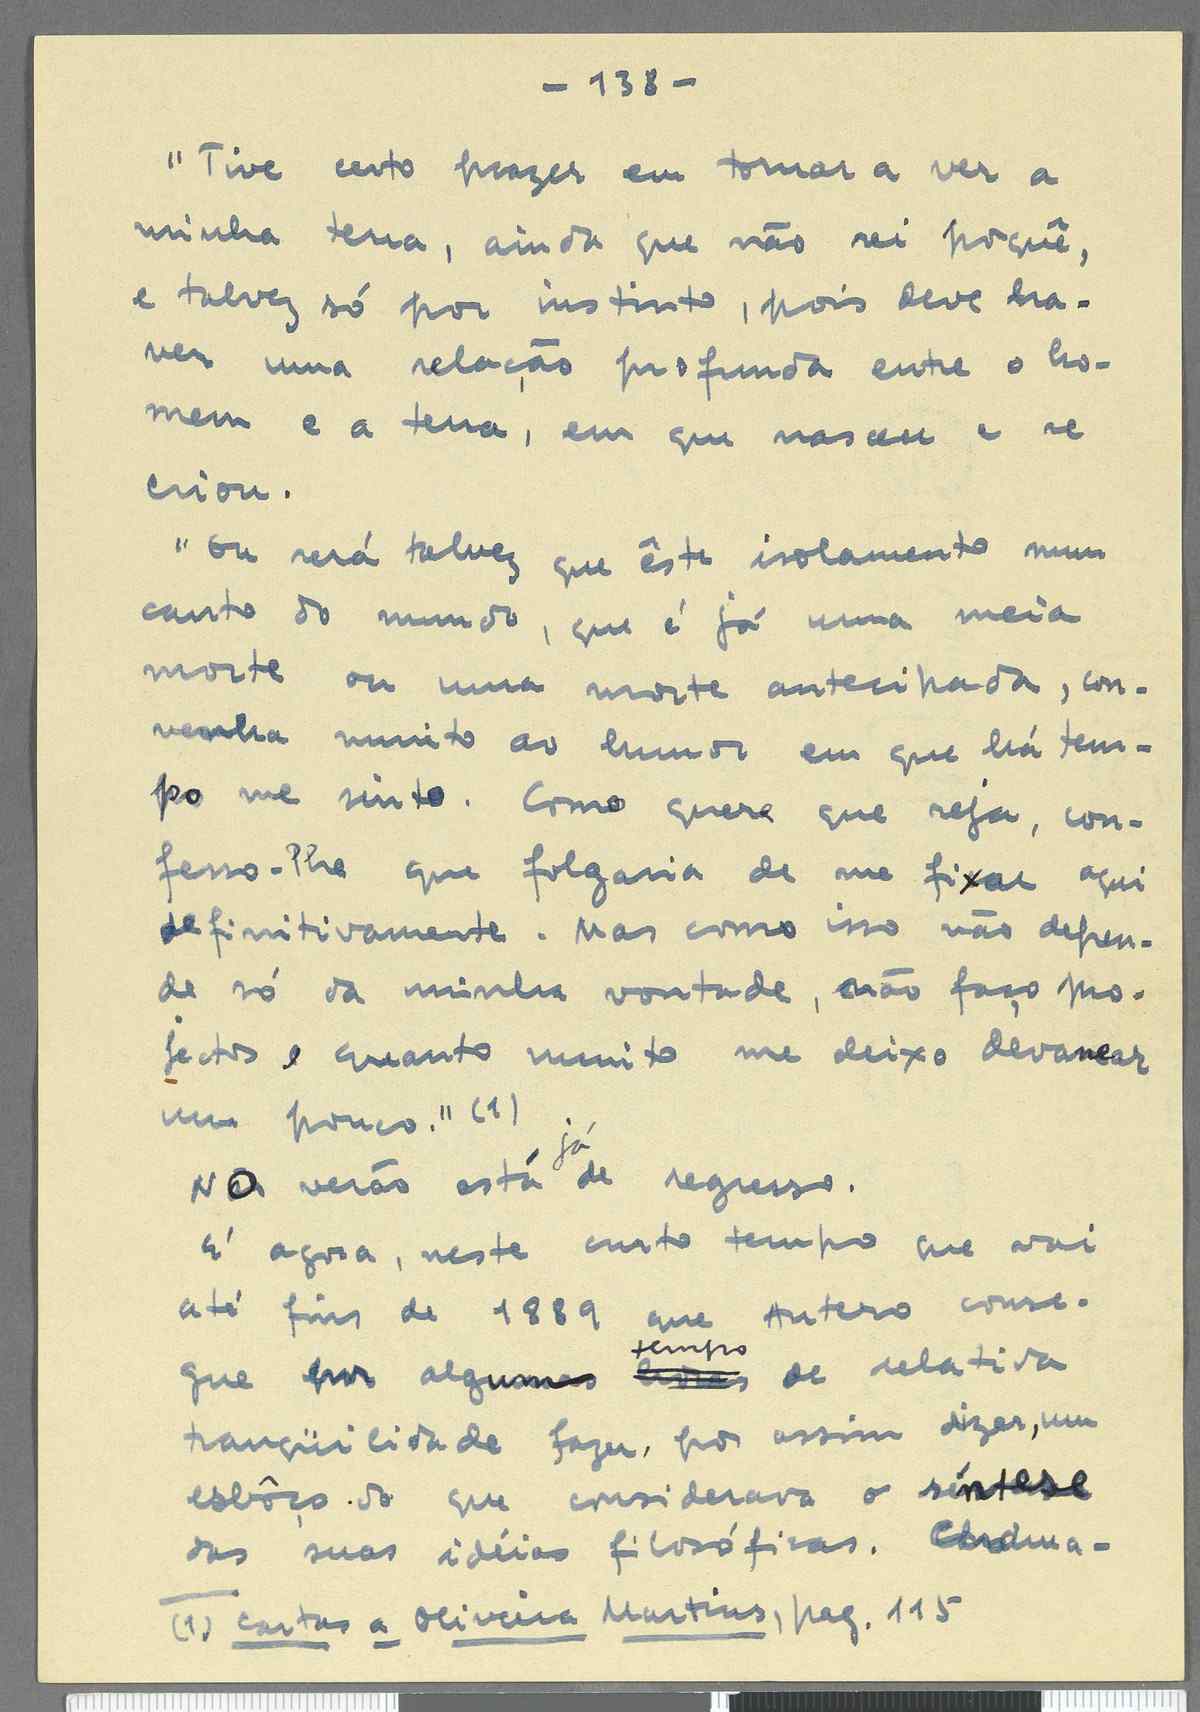 - 138 -
"Tive certo prazer em tornar a ver a
minha terra, ainda que não sei poquê,
e talvez só por instinto, pois deve ha-
ver uma relação profunda entre o ho-
mem e a terra, em que nasceu e se
criou.
"Ou será talvez que êste isolamento num
canto do mundo, que é já uma meia
morte ou uma morte antecipada, con-
venha muito ao humor em que há tem-
po me sinto. Como quere que seja, con-
fesso-lhe que folgaria de me fixar aqui
definitivamente. Mas como isso não depen-
de só da minha vontade, não faço pro-
jectos e quanto muito me deixo devanear
um pouco." (1)
já
No verão está de regresso.
E' agora, neste curto tempo que vai
até fins de 1889 que Antero conse-
tempo
que por algumas horas de relativa
tranqüilidade fazer, por assim dizer, um
esbôço do que considerava a síntese
das suas idéias filosóficas.
(1) Cartas a Oliveira Martins, pag. 115